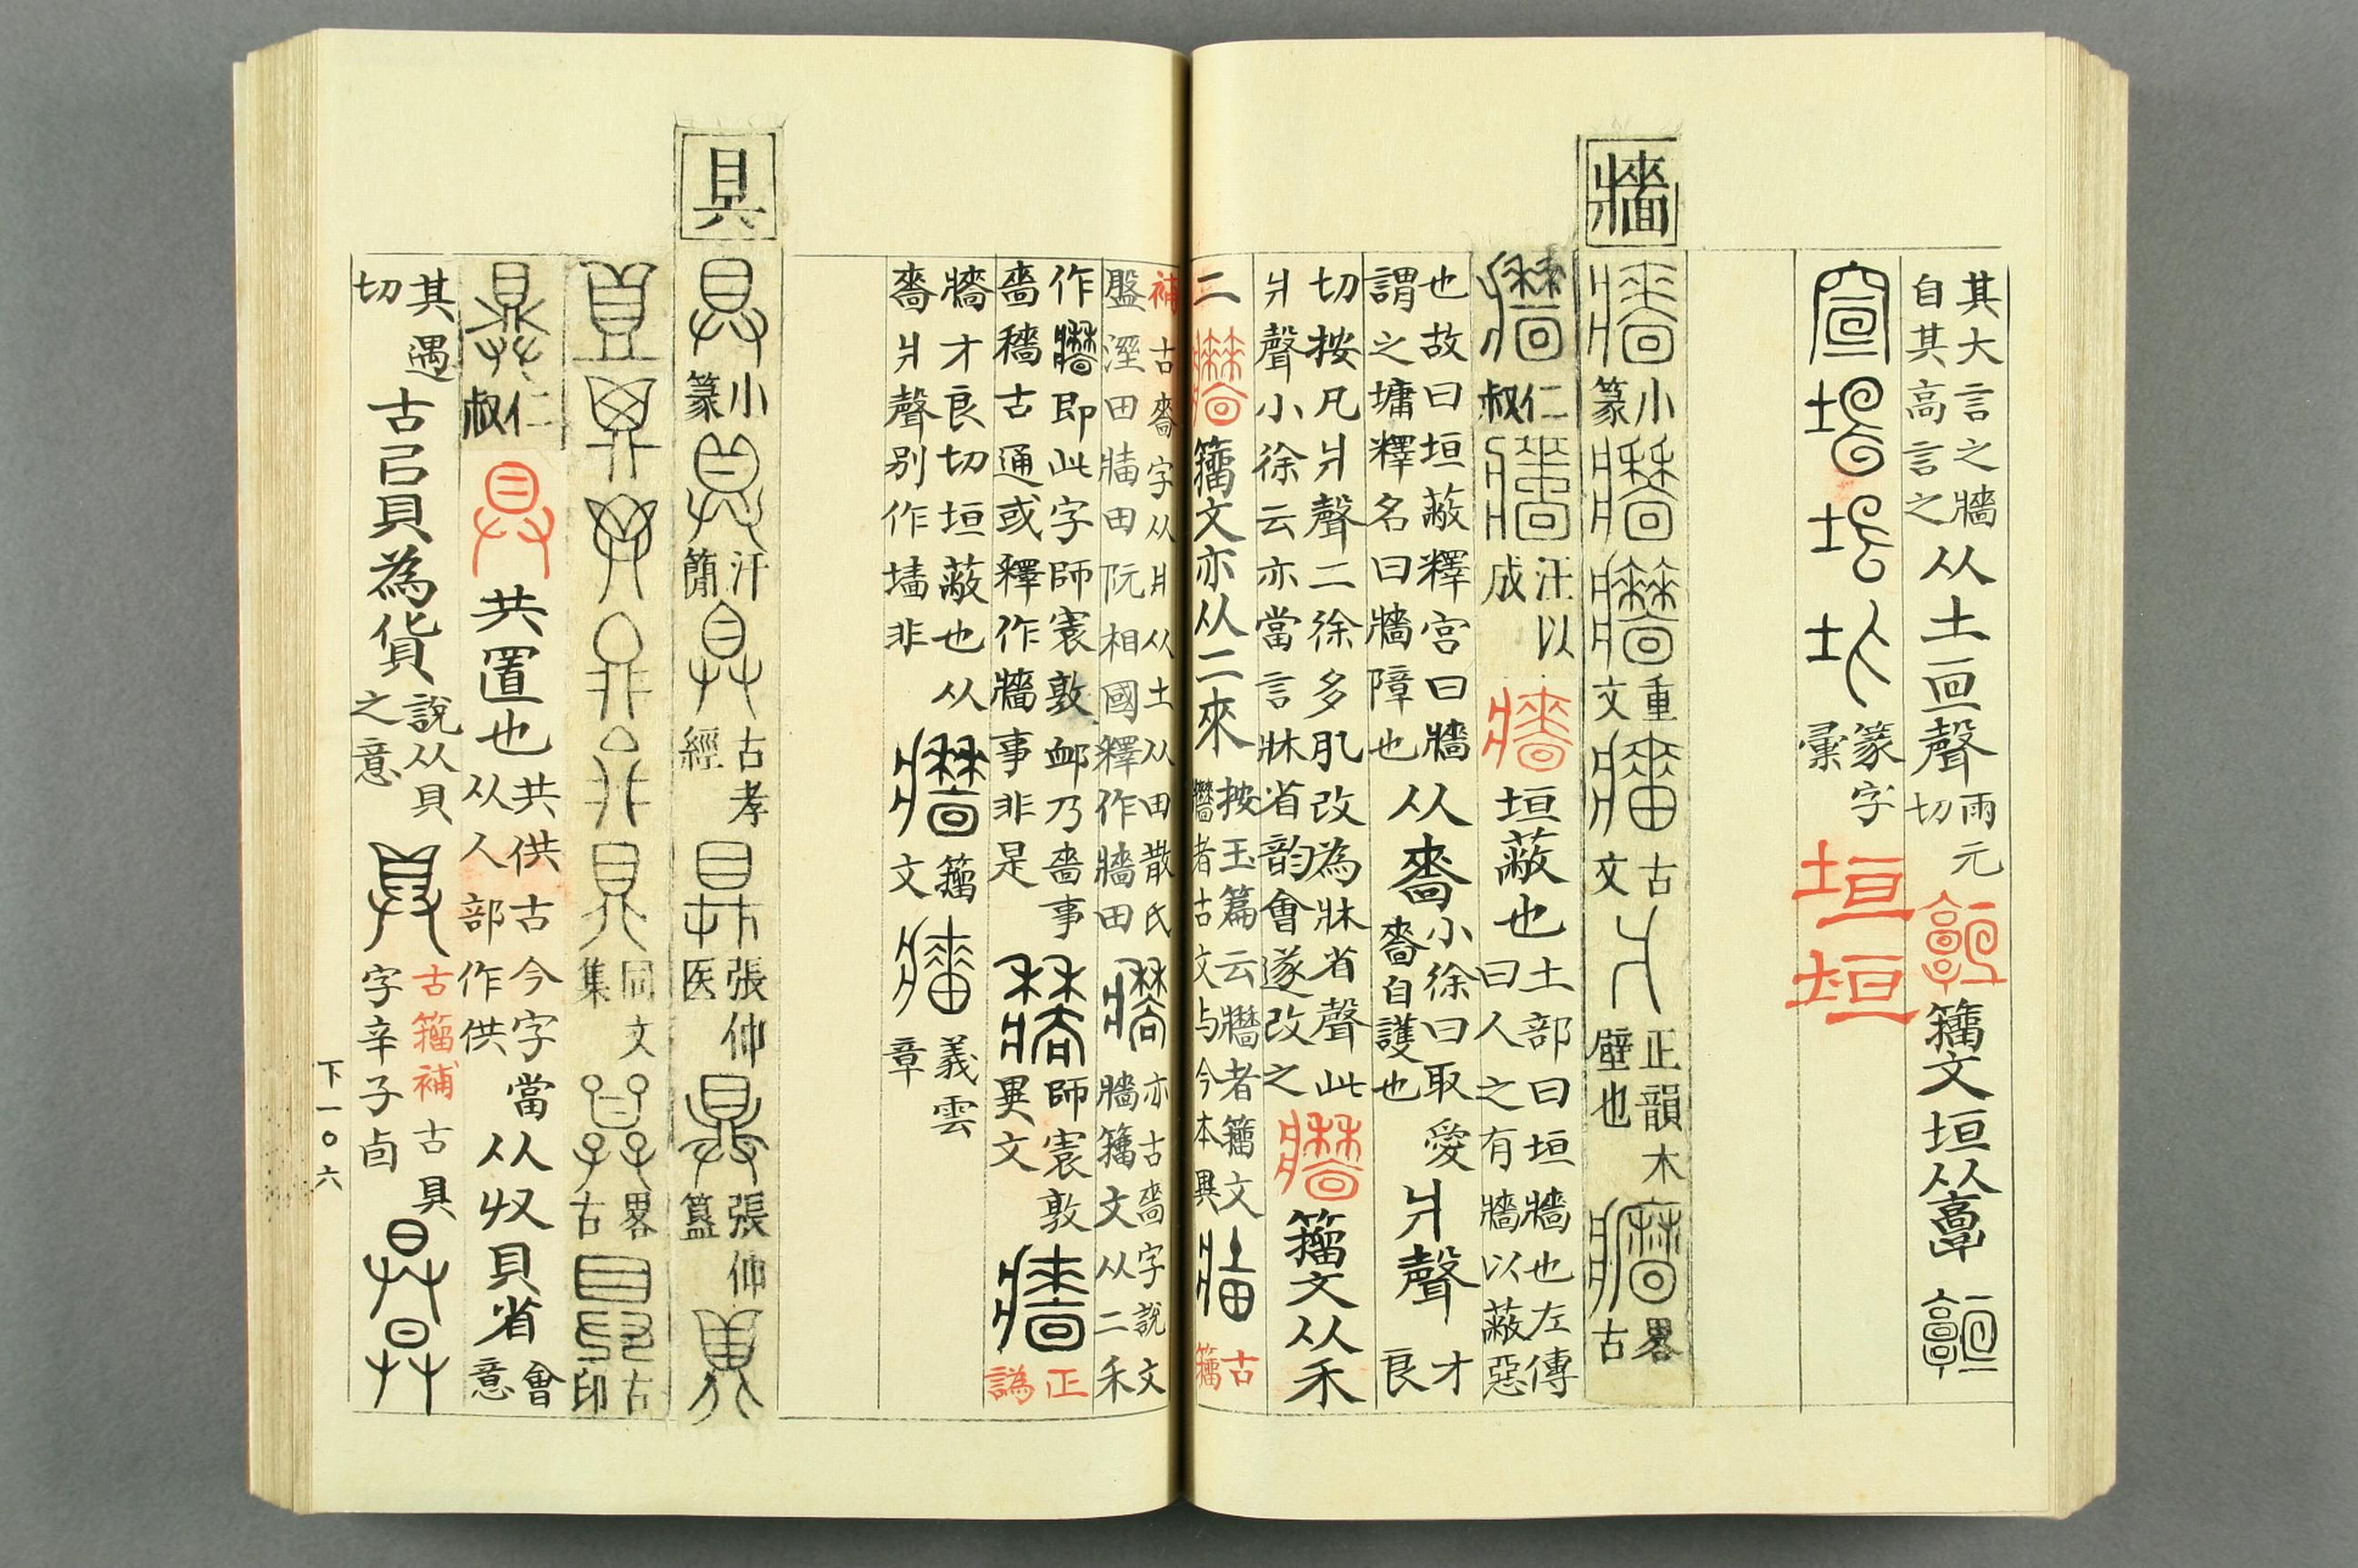 其大言之牆自其高言之从土亘聲雨元切籀文垣从𩫖
篆字彙垣垣
牆
小篆重文古文爿正韻木壁也畧古
仁叔汗以成垣蔽也土部曰垣牆也左傳曰人之有牆以蔽惡
也故曰垣蔽釋宮曰牆謂之墉釋名曰牆障也从嗇小徐曰取愛嗇自護也爿聲才良
切按凡爿聲二徐多肊改為牀省聲此爿聲小徐云亦當言牀省韵會遂改之籀文从禾
二籀文亦从二來按玉篇云牆者籀文者古文与今本異古籀
補古嗇字从爿从土从田散氏盤溼田牆田阮相國釋作牆田亦古嗇字說文牆籀文从二禾
作即此字師寰敦卹乃嗇事嗇穡古通或釋作牆事非是師寰敦異文正譌
牆才良切垣蔽也从嗇爿聲別作墻非籀文義雲章
具
小篆汗簡古孝經張仲医張仲簋
同文集畧古古印
仁叔共置也共供古今字當从人部作供从収貝省會意
其遇切古㠯貝為貨說从貝之意古籀補古具字辛子卣
下一〇六